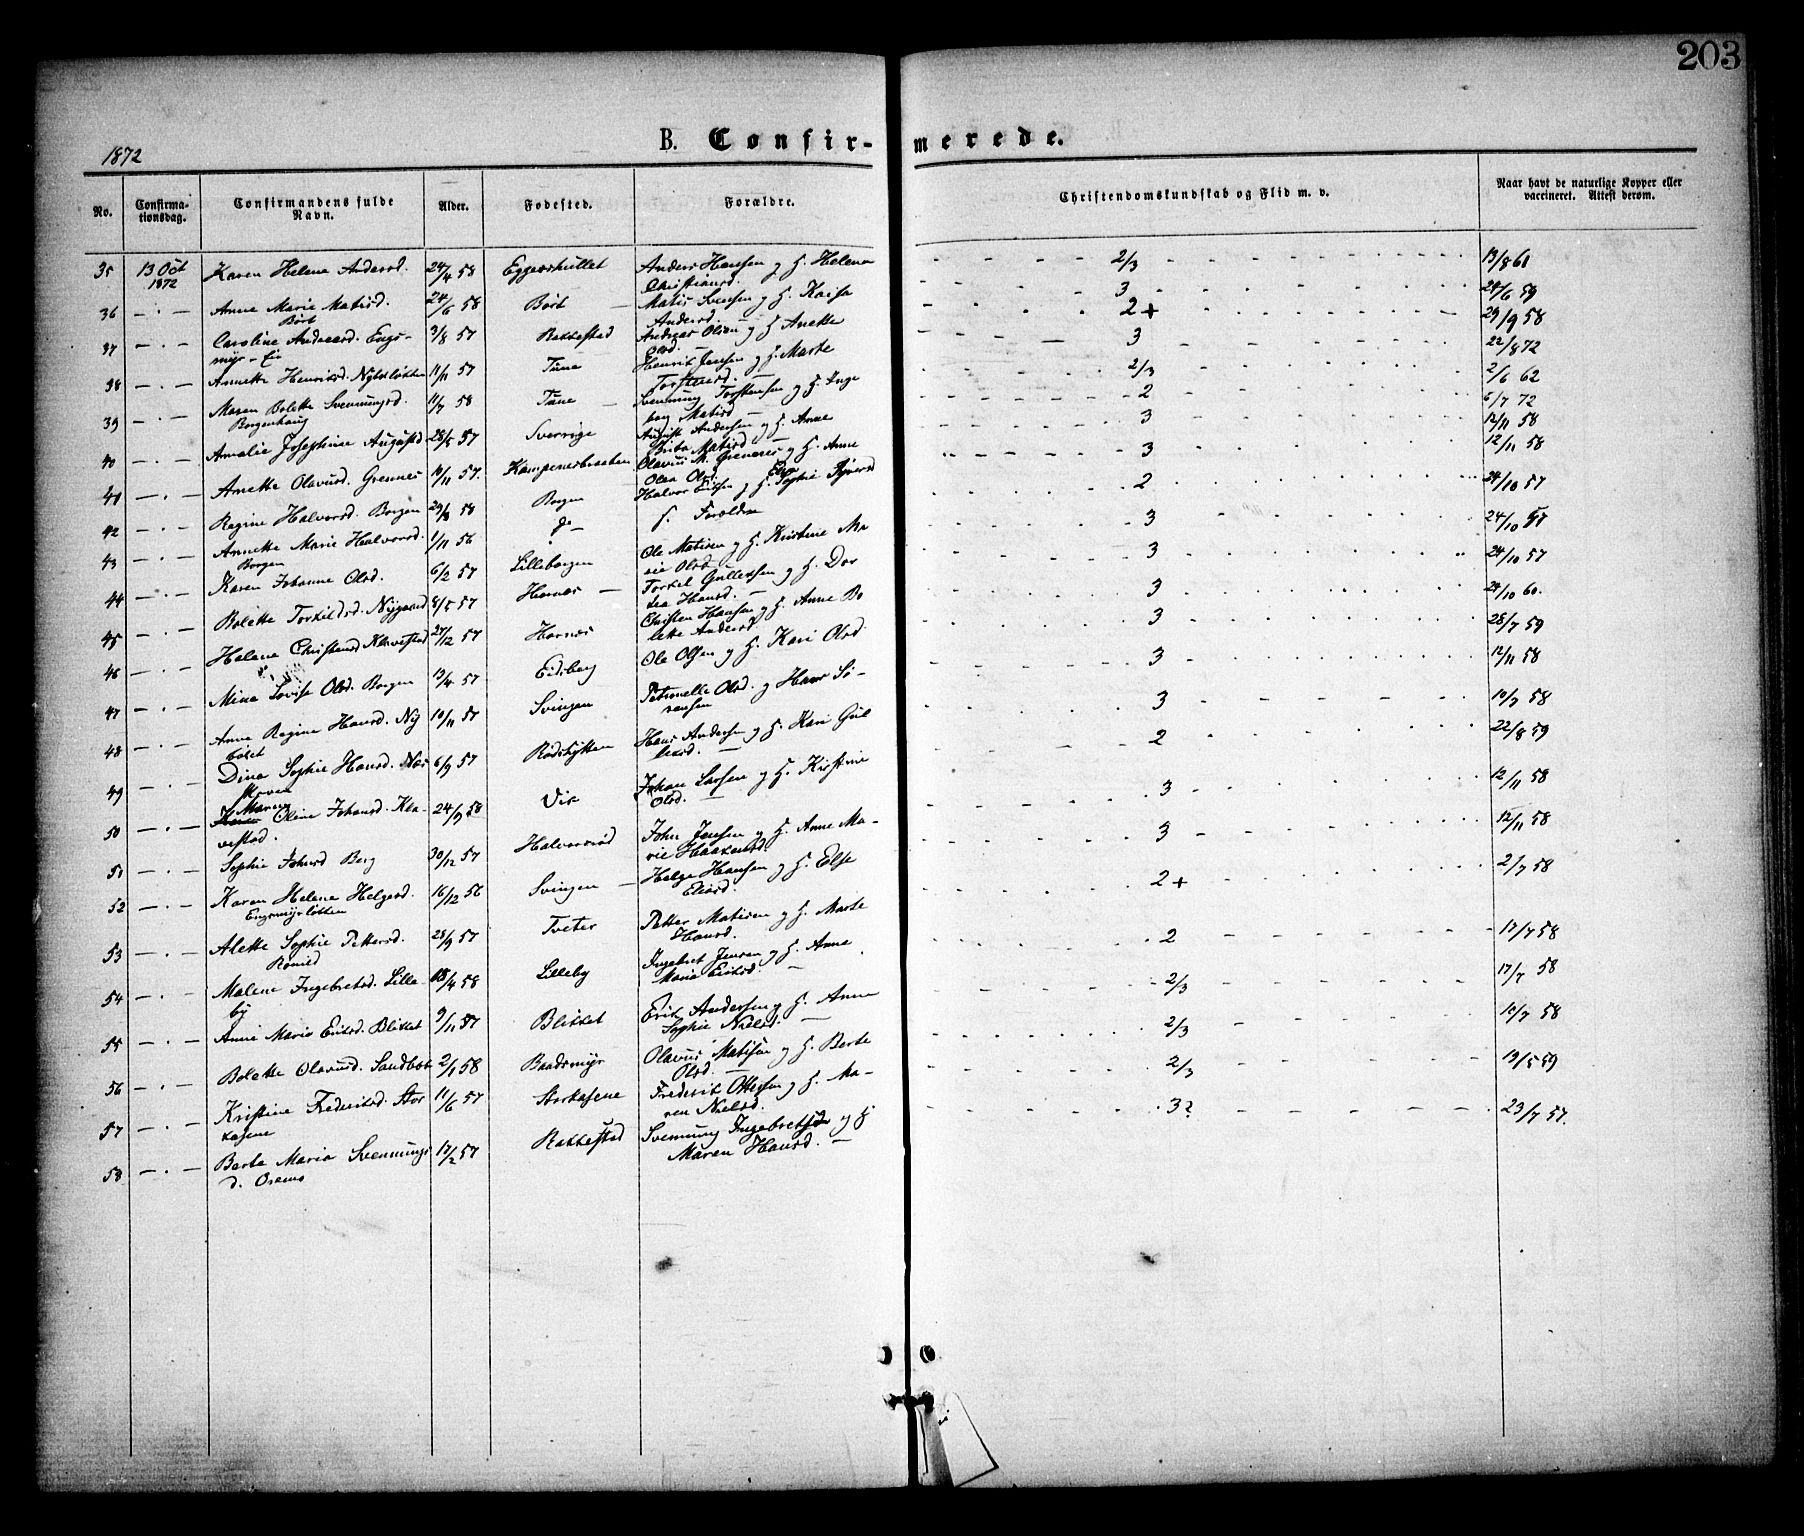 203
1872
B. Confirmerede.
No. Confirmationsdag. Confirmandens fulde Navn. Alder. Fødested. Forældre. Christendomskundskab og Flid m. v. Naar havt de naturlige Kopper eller vaccineret. Attest derom.
35 13 Oct 1872 Karen Helene Andersd. 24/4 58 Anders Hansen g H. Helena Christiansd. 2/3 13/8 61
36 — . — Anne Marie Matisd. Bört 24/6 58 Bört Matis Svensen g H. Kaisa Andersd. 3 24/6 59
37 — . — Caroline 3/8 57 Rakkestad Olsen g H. Anette Olsd. 2+ 29/9 58
38 — . — Annette Henriksd. 11/11 57 Tune Henrik Jensen g H. Marte Torstensd. 3 22/8 72
39 — . — Maren Bolette Svenningsd. Borgenhaug 11/7 58 Tune Svenning Torstensen g H. Ingeborg Matisd 2/3 2/6 62
40 — . — Amalie Josephine Augustd 28/5 57 Sverrige August Andersen g H. Anne Matisd. 2 6/7 72
41 — . — Anette Olavusd. Grennes 10/11 57. Olavus M. Grennes g H. Anne Olea Olsd. 3 12/11 58
42 — . — Regine Halvorsd. Borgen 29/8 58 Borgen Halvor g H. Sophie 3 12/11 58
43 — . — Annette Marie Halvorsd. Borgen 1/11 56 do f. Forældre 2 24/10 57
44 — . — Karen Johanne Olsd. 6/2 57 Lilleborgen Ole Matisen g H. Kristine Marie Olsd. 3 24/10 57
45 — . — Bolette Torkildsd. Nygaard 8/5 57 Hornes Torkel Gullessen g H. Dorthea Hansd. 3 24/10 57
46 — . — Helene Christensd Klavestad 27/12 57 Hornes Christen Hansen g H. Anne Bolette Andersd 3 24/10 60.
47 — . — Mina Lovise Olsd. Borgen 13/4 57 Eidsberg Ole Olsen g H. Kari Olsd 3 28/7 59
48 — . — Anne Regine Hansd. Nybölet 10/11 57 Svingen Petronelle Olsd. g Hans Sörensen 3 12/11 58
49 — . — Dina Sophie Hansd. 6/9 57 Rödshytten Hans Andersen g H. Kari Gullesd. 3 10/7 58
50 — . — Maren Oline Johansd. Klavestad. 24/9 58 Vis Johan Larsen g H. Kirstine Olsd. 2 22/8 59
51 — . — Sophie Johnsd Berg 30/12 57 Halvorsröd John Jensen g H. Anne Marie Haakensd. 3 12/11 58
52 — . — Karen Helene Helgesd. Engsmyrlötten 16/12 56 Svingen Helge Hansen g H. Else Eliasd. 3 12/11 58
53 — . — Alette Sophie Pettersd. Römild 28/9 57 Tveter Petter Matisen g H. Marte Hansd. 2+ 2/7 58
54 — . — Malene Ingebretsd. Lilleby 18/4 58 Lilleby Ingebret Jensen g H. Anne Maria Eriksd. 2 17/7 58
55 — . — Anne Maria Eriksd. Blikket 9/11 57 Blikket Erik Andersen g H. Anne Sophie Nielsd. 2/3 17/7 58
56 — . — Bolette Olavusd. Sandbæk 2/1 58 Baadsmyr Olavus Matisen g H. Berte Olsd. 2/3 10/7 58
57 — . — Kristine Frederiksd. Storkasene 11/6 57 Storkasene Frederik Ottersen g H. Maren Nielsd. 2/3 13/5 59
58 — . — Berte Maria Svennings d. 17/2 57 Rakkestad Svenning Ingebretsen g H Maren Hansd. 3? 23/7 57.